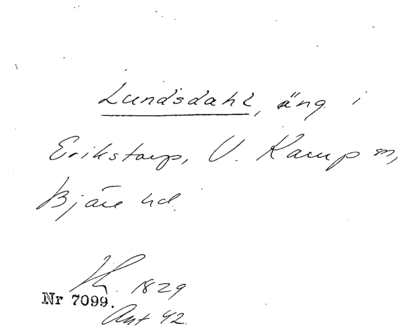 Lundsdahl, äng i
Erikstorp, V. Karup sn,
Bjäre hd.
1829
Nr 7099.
Akt 42